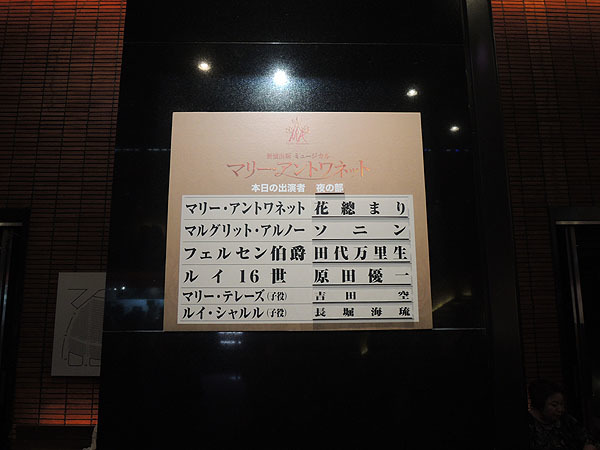 新演出版 ミュージカル
マリー・アントワネット
本日の出演者 夜の部
マリー・アントワネット 花總まり
マルグリット・アルノー ソニン
フェルセン伯爵 田代万里生
ルイ16世 原田優一
マリー・テレーズ(子役) 吉田空
ルイ・シャルル(子役) 長堀海琉